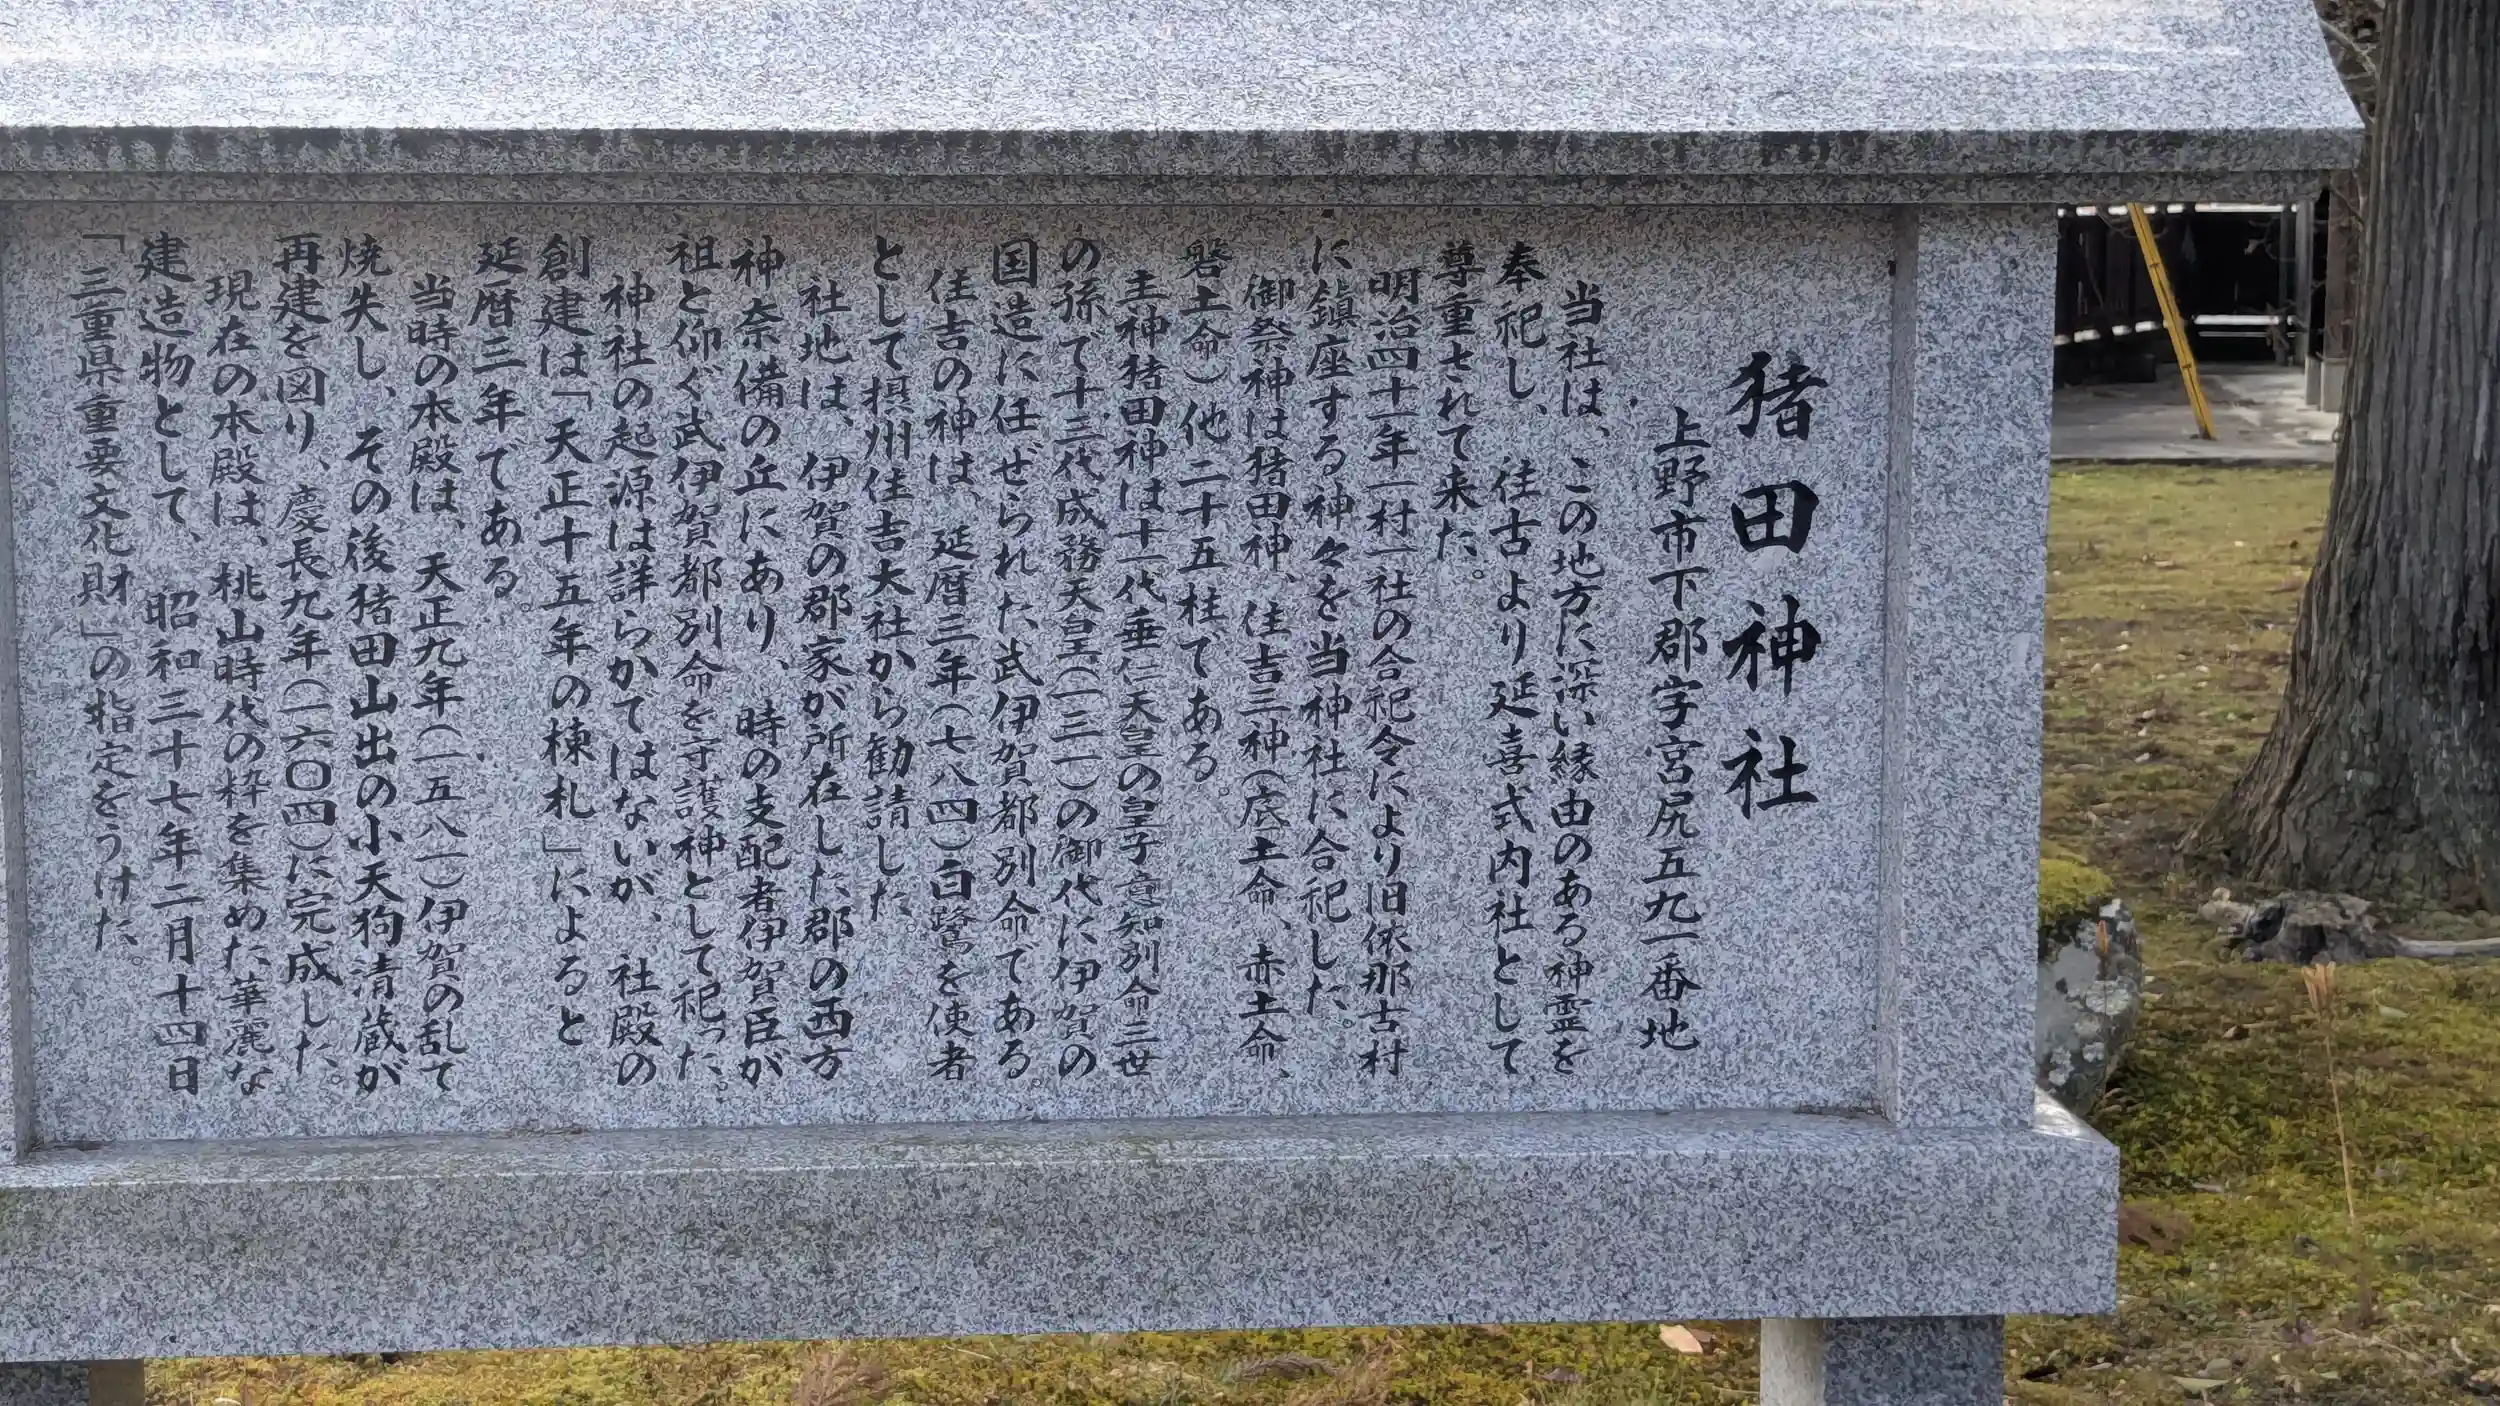 猪田神社
上野市下郡字宮尻五九一番地
当社は、この地方に深い縁由のある神霊を
奉祀し、往古より延喜式内社として
尊重されて来た。
明治四十一年一村一社の合祀令により旧依那古村
に鎮座する神々を当神社に合祀した。
御祭神は猪田神、住吉三神(底土命、赤土命、
磐土命)他二十五柱である。
主神猪田神は十一代垂仁天皇の皇子意知別命三世
の孫で十三代成務天皇(一三一)の御代に伊賀の
国造に任ぜられた武伊賀都別命である。
住吉の神は、延暦三年(七八四)白鷺を使者
として摂州住吉大社から勧請した。
社地は、伊賀の郡家が所在した郡の西方
神奈備の丘にあり、時の支配者伊賀臣が
祖と仰ぐ武伊賀都別命を守護神として祀った。
神社の起源は詳らかではないが、社殿の
創建は「天正十五年の棟札」によると
延暦三年である。
当時の本殿は、天正九年(一五八一)伊賀の乱で
焼失し、その後猪田山出の小天狗清蔵が
再建を図り、慶長九年(一六〇四)に完成した。
現在の本殿は、桃山時代の粋を集めた華麗な
建造物として、昭和三十七年二月十四日
「三重県重要文化財」の指定をうけた。